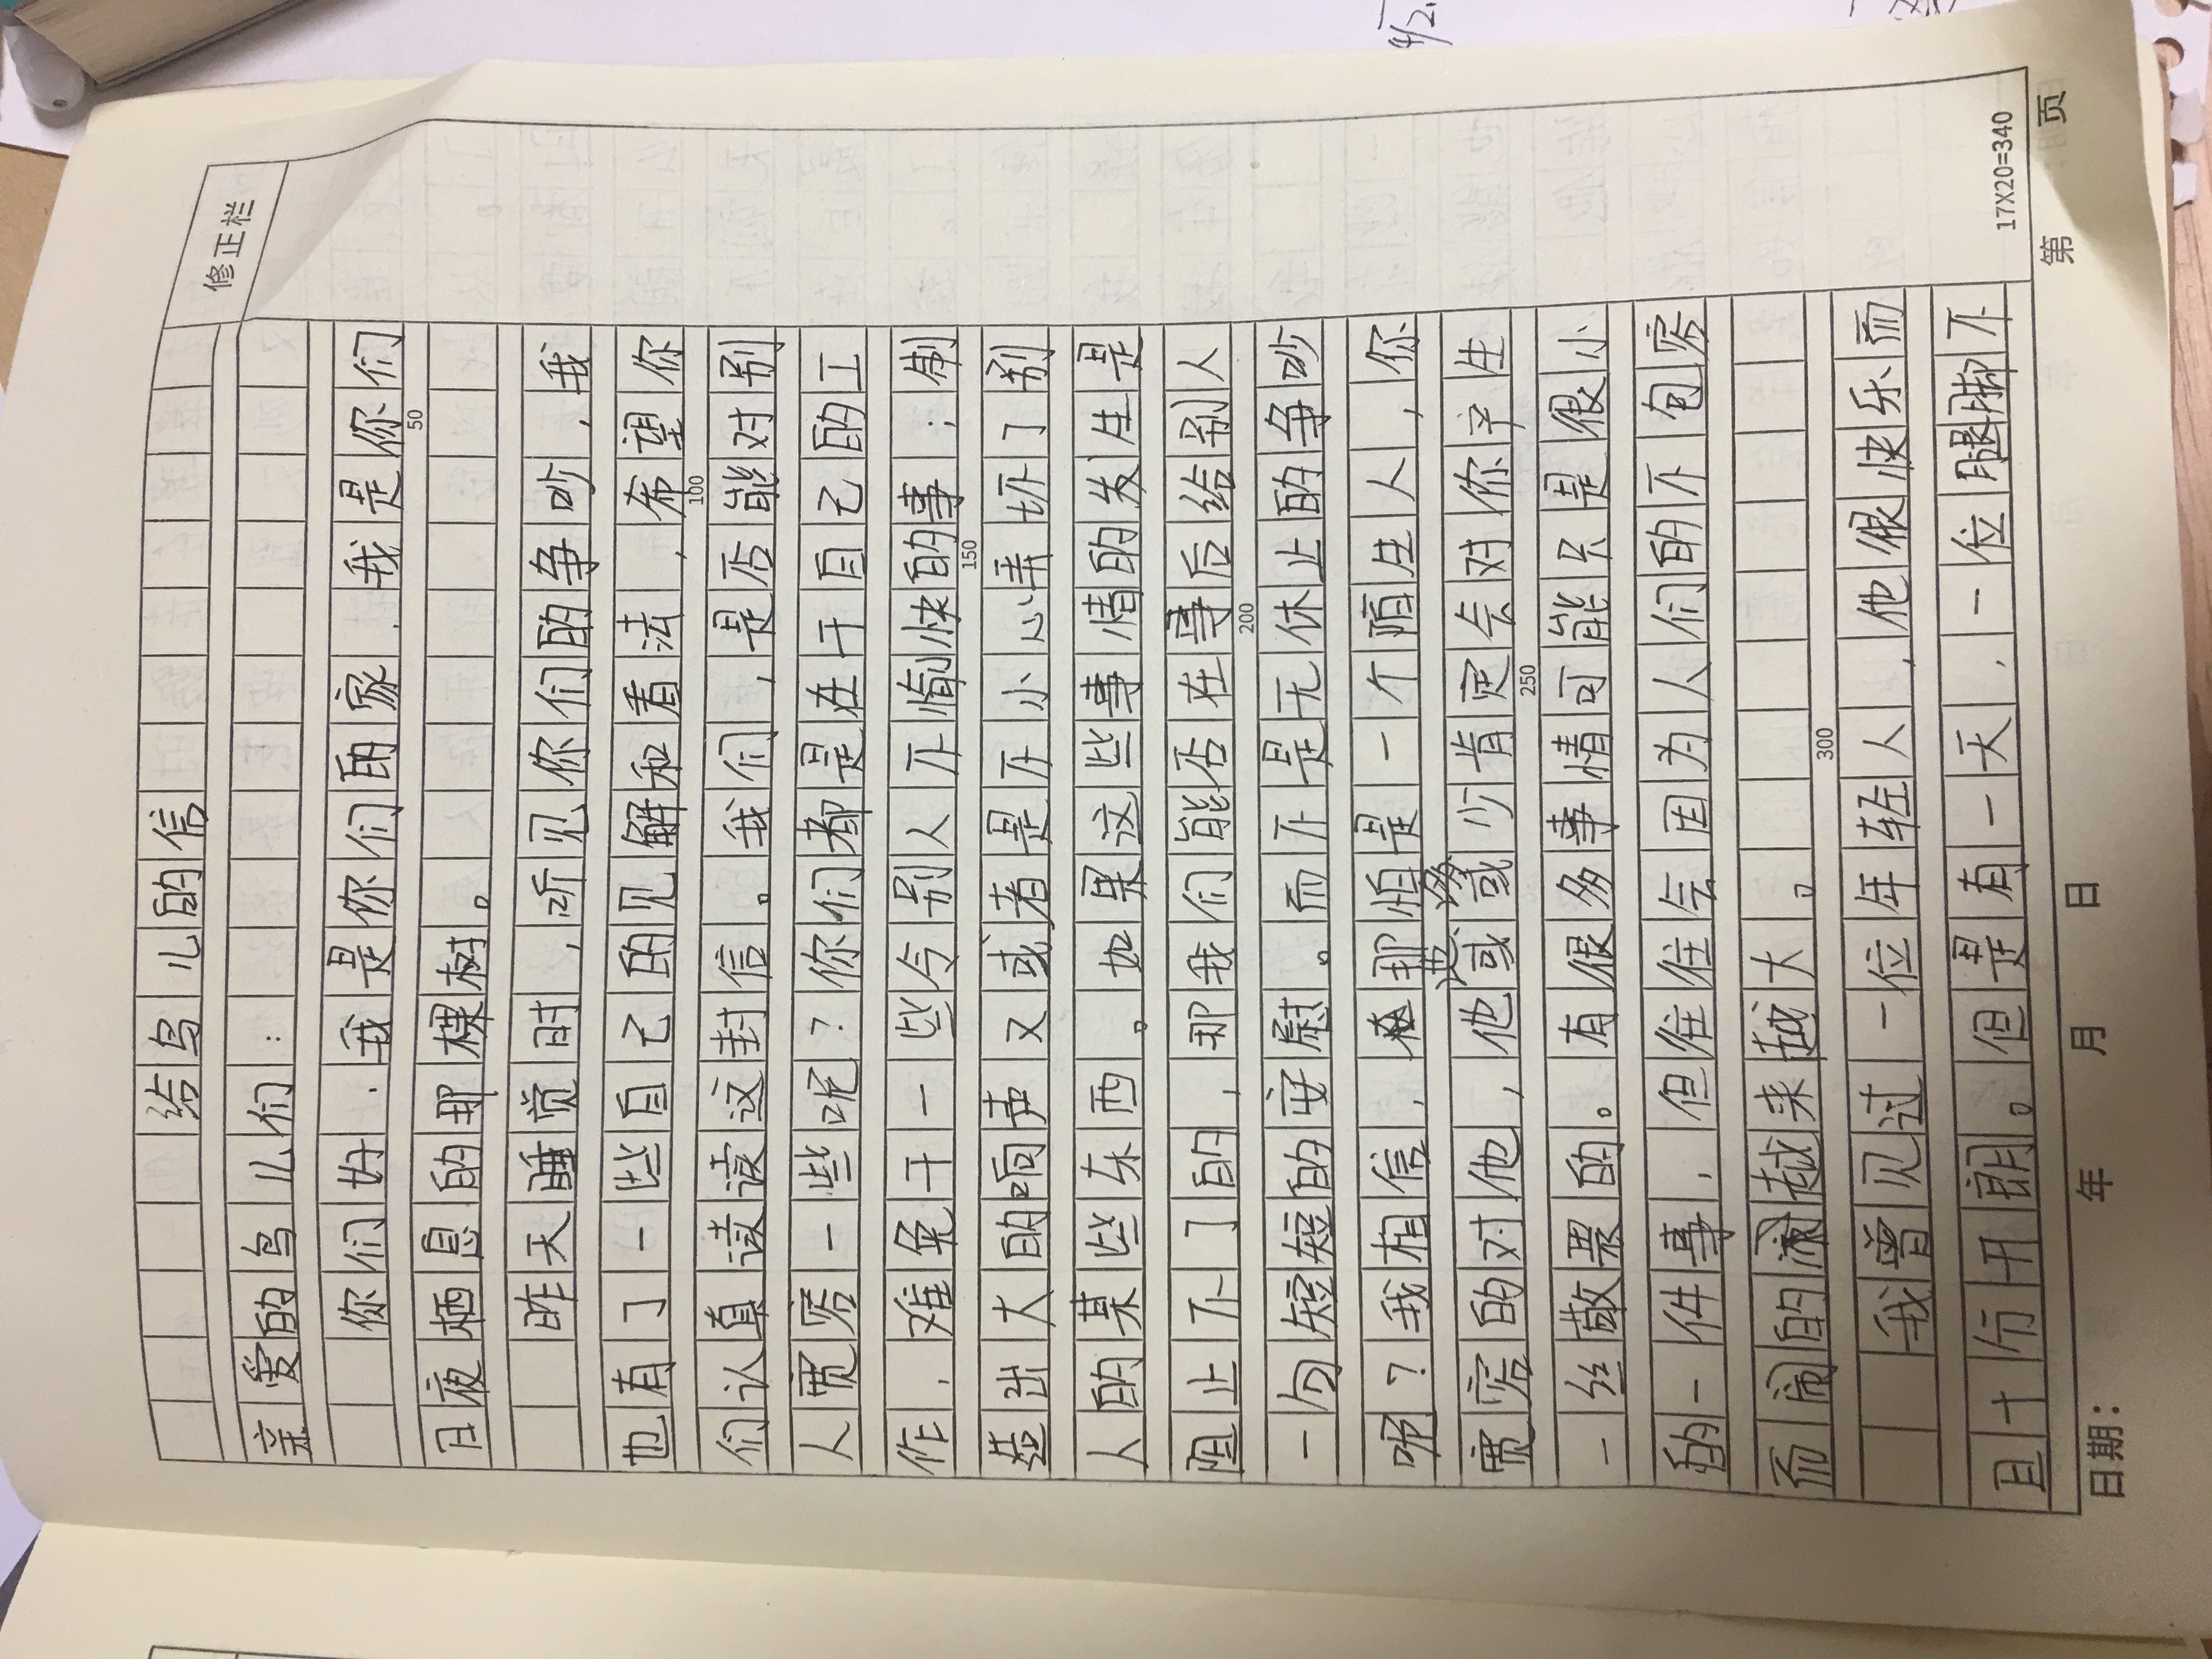 修正栏
给鸟儿的信
亲爱的鸟儿们：
你们好．我是你们的家．我是你们
50
日夜栖息的那棵树。
昨天睡觉时，听见你们的争吵，我
也有了一些自己的见解和看法，希望你
100
们认真读读这封信。我们，是否能对别
人宽容一些呢？你们都是在干自己的工
作．难免干一些令别人不愉快的事；制
150
造出大的响声又或者是不小心弄坏了别
人的某些东西。如果这些事情的发生是
阻止不了的，那我们能否在事后给别人
200
一句短短的安慰。而不是无休止的争吵
呢？我相信，那怕是一个陌生人，你
宽容的对他，他或多或少肯定会对你产生
250
一丝敬畏的。有很多事情可能只是很小
的一件事．但往往会因为人们的不包容
而闹的越来越大。
300
我曾见过一位年轻人，他很快乐而
且十份开朗。但是有一天，一位腿脚不
17X20=340
日期： 年 月 日 第 页
4/2.